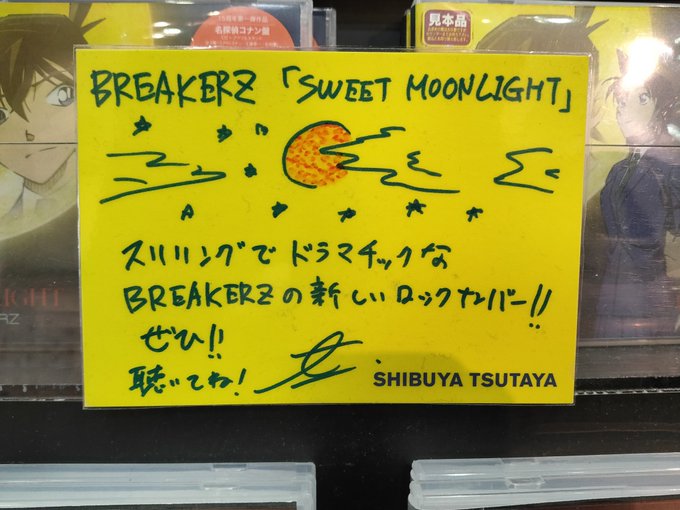 15周年第一弾作品
名探偵コナン盤
見本品
BREAKERZ「SWEET MOONLIGHT」
スリリングでドラマチックな
BREAKERZの新しいロックナンバー!!
ぜひ!!
聴いてね!
SHIBUYA TSUTAYA
LIGHT
RZ